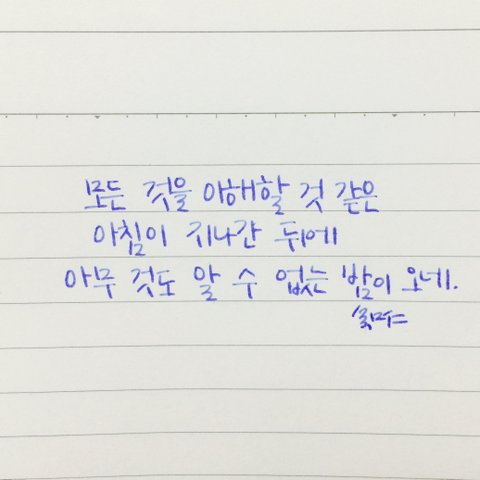 모든 것을 이해할 것 같은
아침이 지나간 뒤에
아무 것도 알 수 없는 밤이 오네.